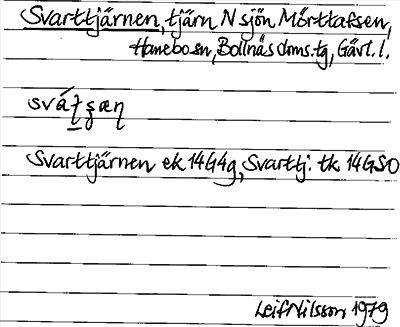 Svarttjärnen, tjärn N sjön Mörttafsen,
Hanebo sn, Bollnäs doms.tg, Gävl. l.
Svarttjärnen ek 14G4g, Svarttj. tk 14GSO
Leif Nilsson 1979